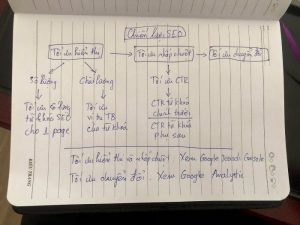 Chiến lược SEO
Tối ưu hiển thị
Tối ưu nhấp chuột
Tối ưu chuyển đổi
Số lượng
Chất lượng
Tối ưu CTR
Tối ưu số lượng
từ khóa SEO
cho 1 page
Tối ưu
vị trí TB
của từ khóa
CTR từ khóa
chính trước
CTR từ khóa
phụ sau
Tối ưu hiển thị và nhấp chuột: Xem Google Search Console
Tối ưu chuyển đổi: Xem Google Analytic